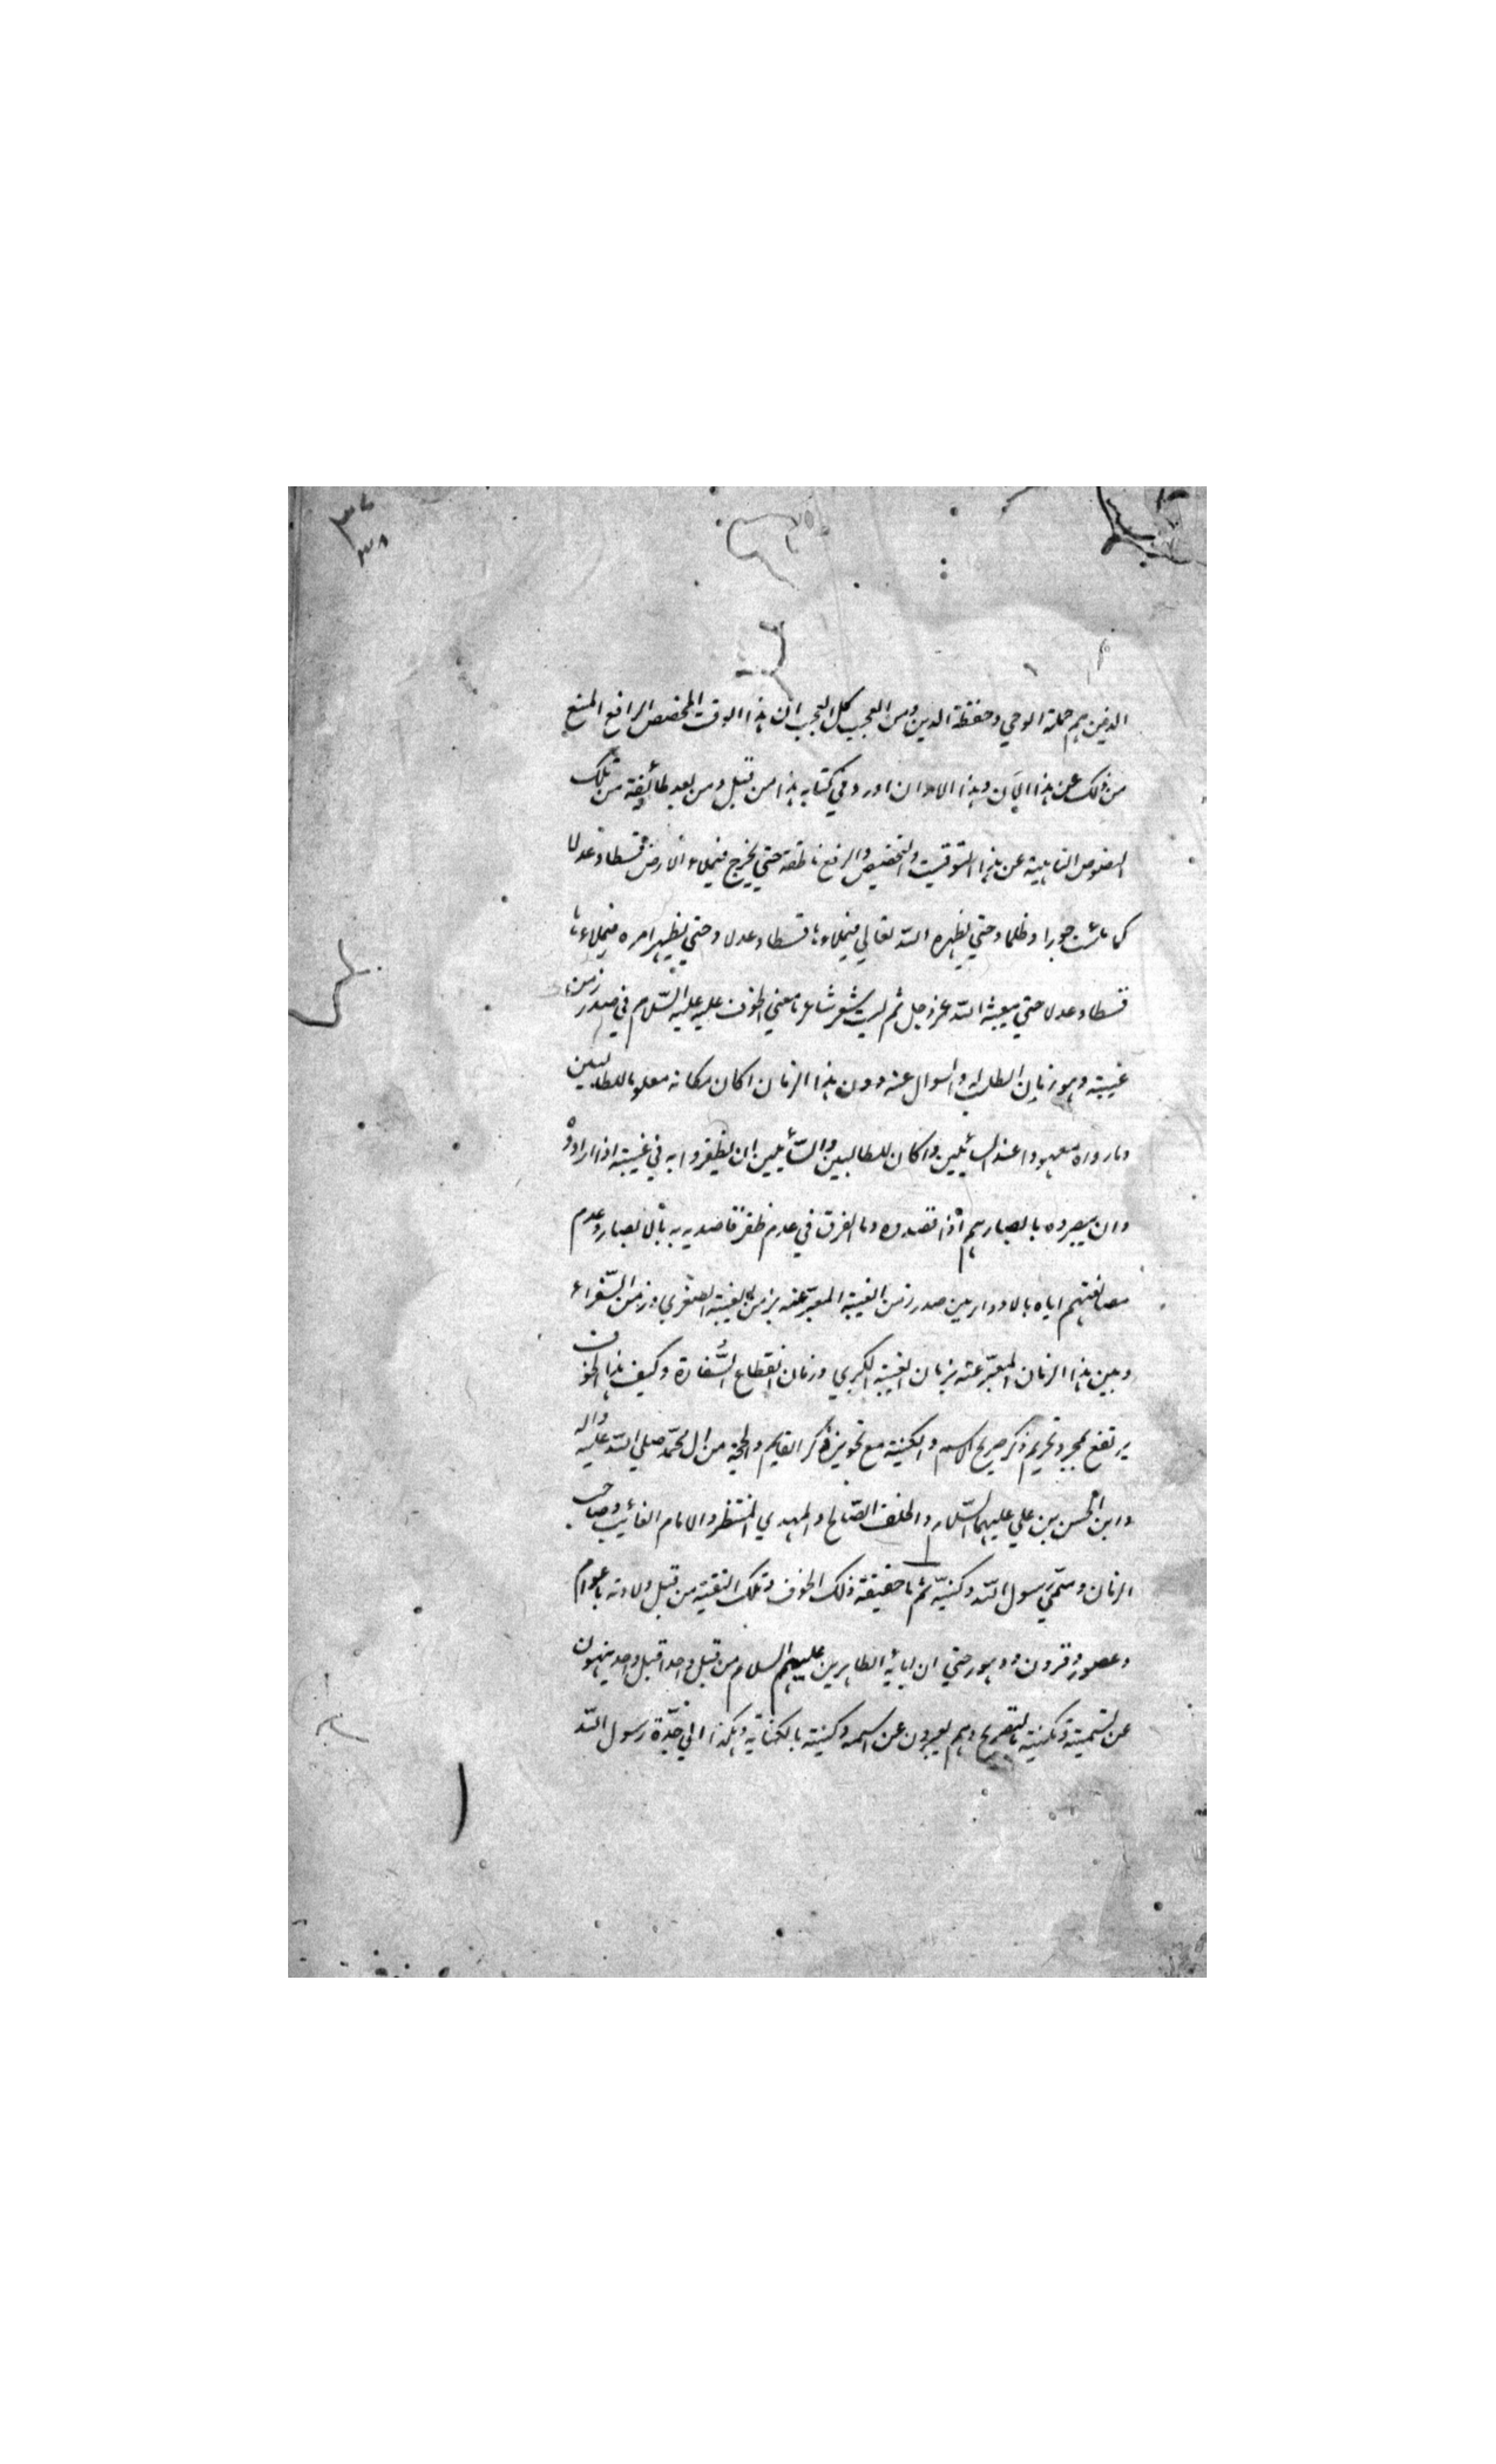 ٣٧
٣٨
الذين هم حملة الوحي وحفظة الدين ومن العجب كل العجب ان هذا الموقت المخصص الرافع المنع
من ذلك عن هذا الان وهذا الاوان اورد في كتابه هذا من قبل ومن بعد طائفة من تلك
النصوص النابية عن هذا التوقيت والتخصيص والرفع ناطقة حتي يخرج فيملاء الارض قسطا وعدلا
كما ملئت جورا وظلما وحتي يظهره الله تعالي فيملاءها قسطا وعدلا وحتي يظهر امره فيملاءها
قسطا وعدلا حتي يبعثه الله عزوجل ثم ليت شعر شاعر ما معني الخوف عليه عليه السلام في صدر زمن
غيبته وهو زمان الطلب له والسوال عنه دون هذا الزمان اكان مكانه معلوما للطالبين
وما رواه معهودا عند السائلين واكان للطالبين والسائلين ان يظفروا به في غيبته اذا ارادوه
وان يبصروه بابصارهم اذا قصدوه وما الفرق في عدم ظفر قاصديه به بالابصار وعدم
مصادفتهم اياه بالادوار بين صدر زمن الغيبة المعبر عنه بزمن الغيبة الصغري وزمن السفراء
وبين هذا الزمان المعبر عنه بزمان الغيبة الكبري وزمان انقطاع السفارة وكيف هذا الخوف
يرتفع بمجرد تحريم ذكر صريح الاسم والكنية مع تجويز ذكر القايم والحجة من ال محمد صلي الله عليه واله
وابن الحسن بن علي عليهما السلام والخلف الصالح والمهدي المنتظر والامام الغائب وصاحب
الزمان وسمي رسول الله وكنيه ثم ما حقيقة ذلك الخوف وتلك التقية من قبل ولادته باعوام
وعصور وقرون ودهور حتي ان ابائه الطاهرين عليهم السلام من قبل واحدا قبل واحد ينهون
عن تسميته وتكنيته بالتصريح وهم يعبرون عن اسمه وكنيته بالكناية وهكذا الي جده رسول الله